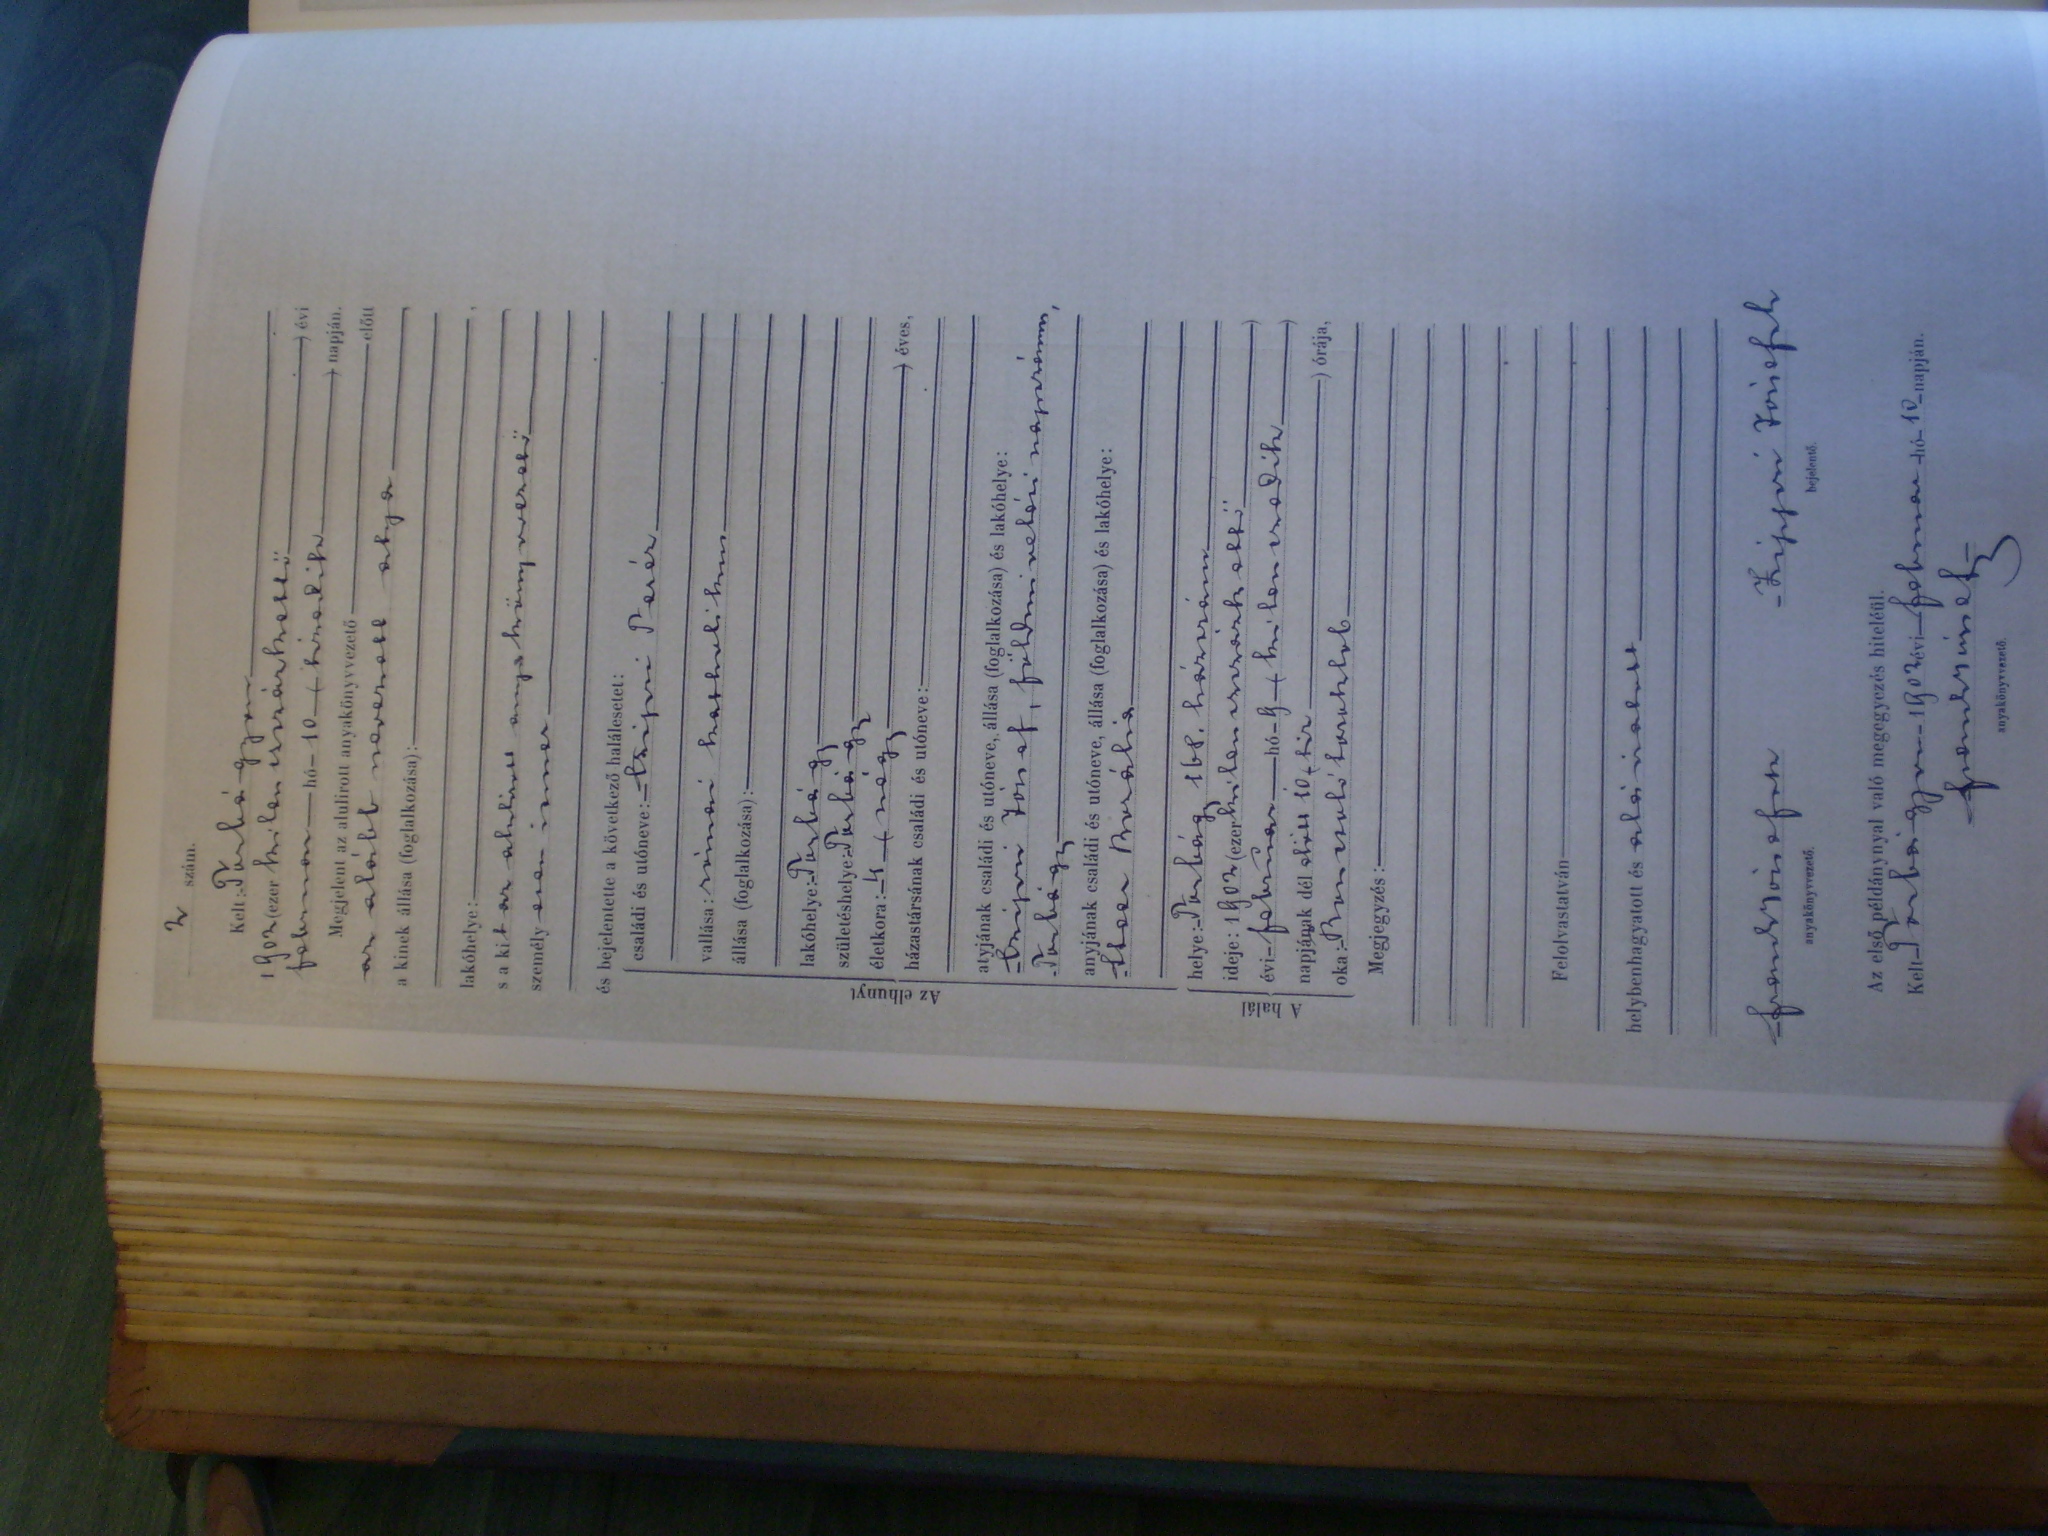 2 szám.
Kelt: Torbágyon
1902 (ezer kilenczszázkettő) évi
február hó 10 (tizedik) napján.
Megjelent az alulirott anyakönyvvezető előtt
az alább nevezett atya
a kinek állása (foglalkozása):
lakóhelye: ,
s a kit az alulirott anyakönyvvezető
személyesen ismer
és bejelentette a következő halálesetet:
Az elhunyt
családi és utóneve: Péter
vallása: római katholikus
állása (foglalkozása):
lakóhelye: Torbágy
születéshelye: Torbágy
életkora: 4 (négy) éves,
házastársának családi és utóneve:
atyjának családi és utóneve, állása (foglalkozása) és lakóhelye:
József, földmivelési napszámos,
Torbágy
anyjának családi és utóneve, állása (foglalkozása) és lakóhelye:
Borbála
A halál
helye: Torbágy 168. házszám
ideje: 1902 (ezerkilenczszázkettő)
évi február hó 9 (kilenczedik)
napjának dél előtt 10 (tiz) órája,
oka: Roncsoló toroklob
Megjegyzés:
Felolvastatván
helybenhagyatott és aláiratott
anyakönyvvezető. bejelentő.
Az első példánynyal való megegyezés hiteléül.
Kelt Torbágyon 1902 évi február hó 10 napján.
anyakönyvvezető.